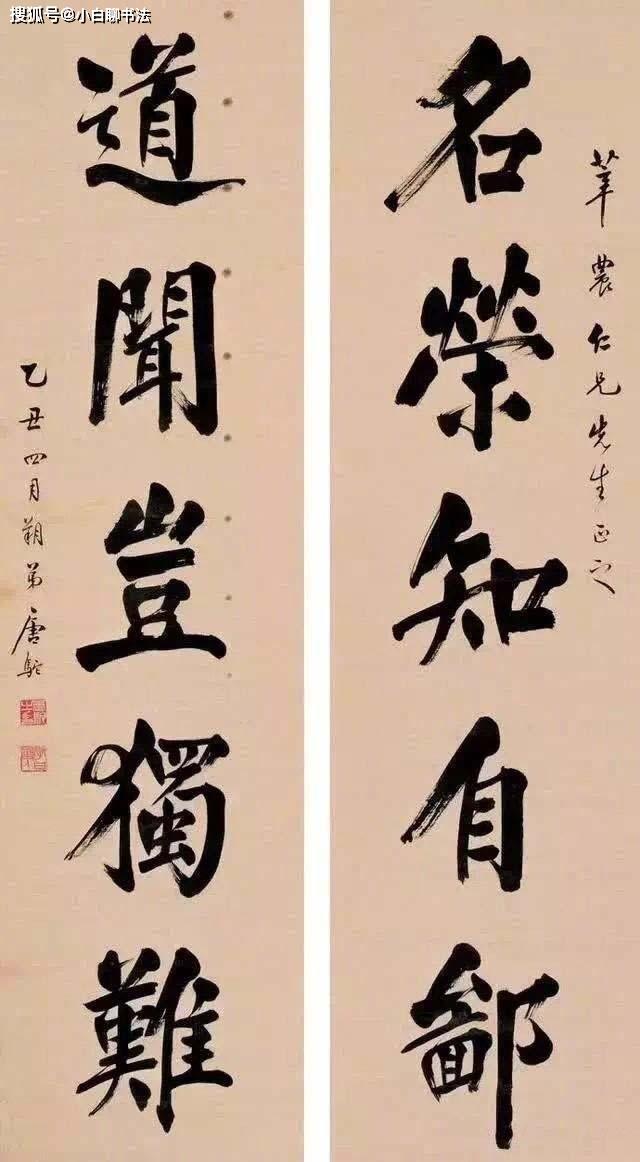 搜狐号@小白聊书法
莘農仁兄先生正之
名榮知自鄙
道聞豈獨難
乙丑四月朔弟唐駝